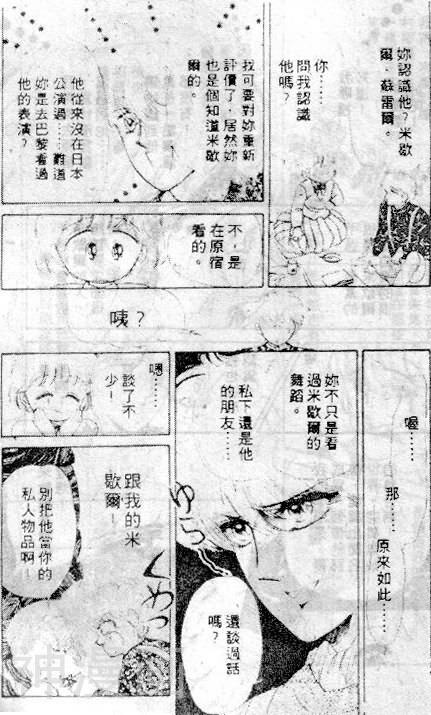 妳認識他？米歇
爾．蘇雷爾。
你……
問我認識
他嗎？
我可要對妳重新
評價了，居然妳
也是個知道米歇
爾的。
他從來沒在日本
公演過……難道
妳是去巴黎看過
他的表演？
不，是
在原宿
看的。
咦？
喔……
那……
原來如此……
妳不只是看
過米歇爾的
舞蹈。
私下還是他
的朋友……
ゆらっ
還談過話
嗎？
嗯……
談了不
少！
跟我的米
歇爾！
くわっ
別把他當你的
私人物品啊！
神漫